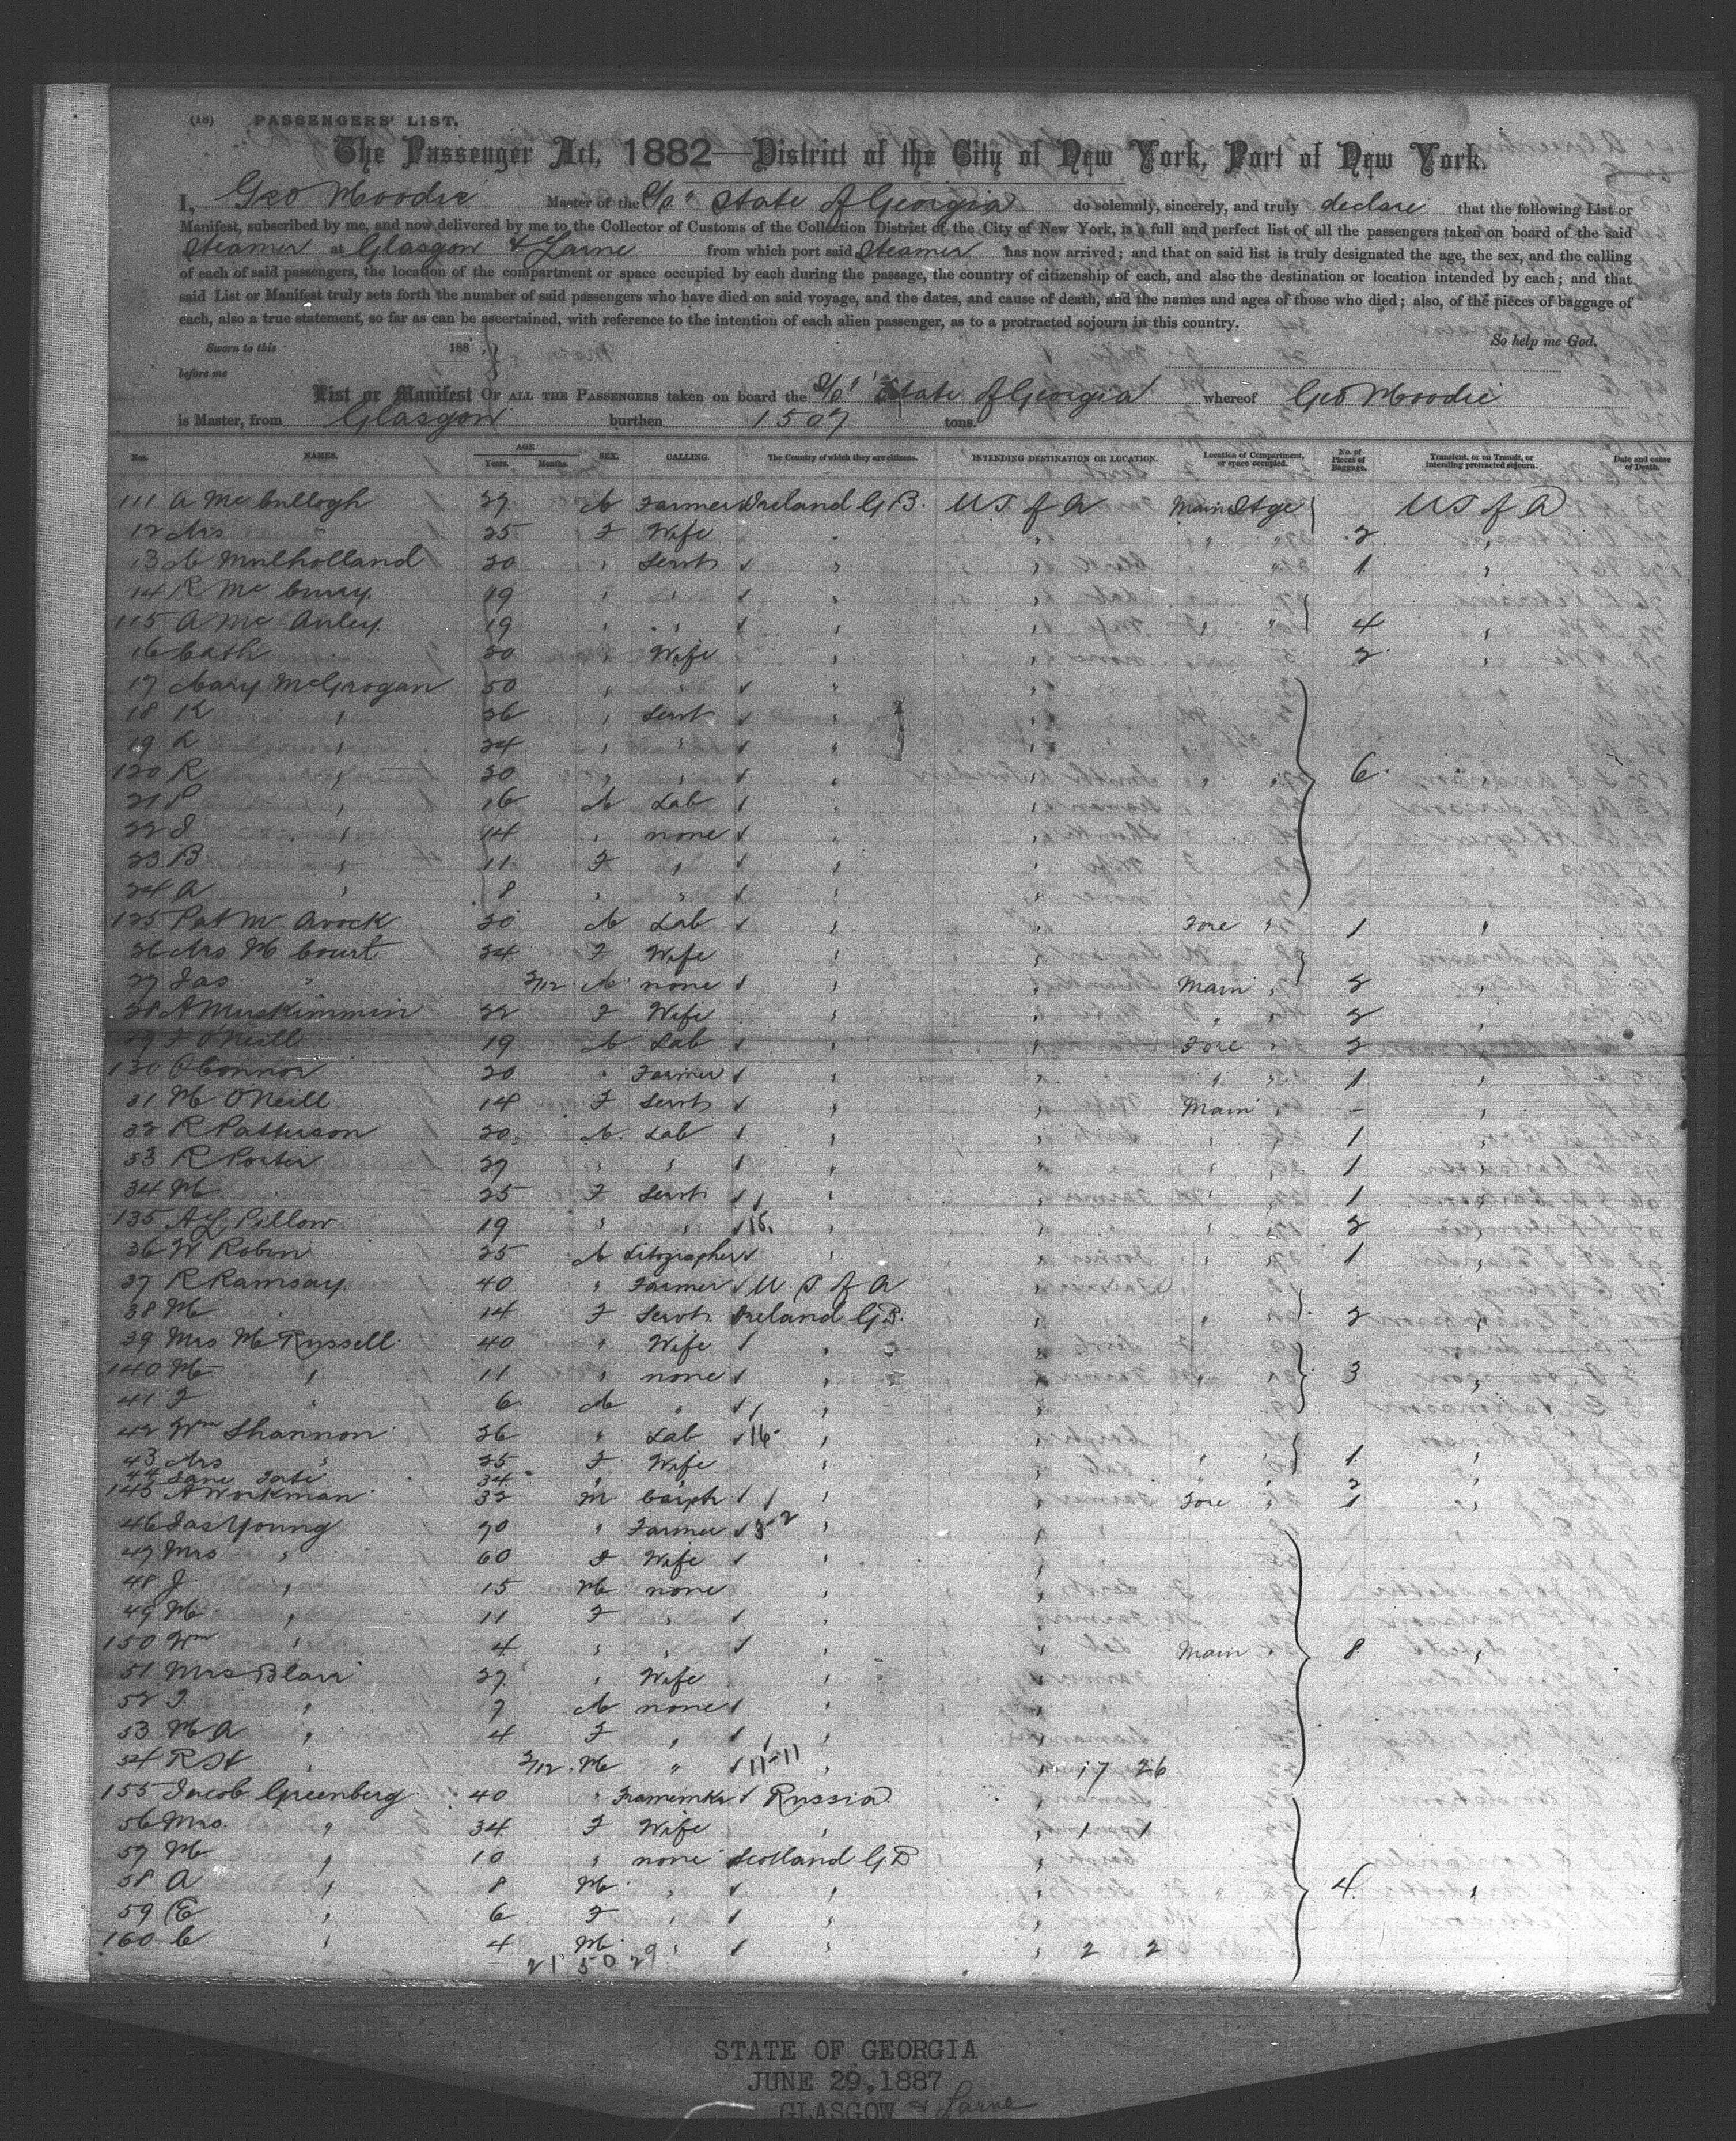 (18) PASSENGERS' LIST.
The Passenger Act, 1882—District of the City of New York, Port of New York.
I, Geo Moodie Master of the S/S " State of Georgia do solemnly, sincerely, and truly declare that the following List or
Manifest, subscribed by me, and now delivered by me to the Collector of Customs of the Collection District of the City of New York, is a full and perfect list of all the passengers taken on board of the said
Steamer at Glasgow & Larne from which port said Steamer has now arrived; and that on said list is truly designated the age, the sex, and the calling
of each of said passengers, the location of the compartment or space occupied by each during the passage, the country of citizenship of each, and also the destination or location intended by each; and that
said List or Manifest truly sets forth the number of said passengers who have died on said voyage, and the dates, and cause of death, and the names and ages of those who died; also, of the pieces of baggage of
each, also a true statement, so far as can be ascertained, with reference to the intention of each alien passenger, as to a protracted sojourn in this country.
Sworn to this 188 So help me God.
before me
List or Manifest OF ALL THE PASSENGERS taken on board the S/S " State of Georgia whereof Geo Moodie
is Master, from Glasgow burthen 1507 tons.
Nos. NAMES. AGE Years. Months. SEX. CALLING. The Country of which they are citizens. INTENDING DESTINATION OR LOCATION. Location of Compartment, or space occupied. No. of Pieces of Baggage. Transient, or on Transit, or intending protracted sojourn. Date and cause of Death.
111 A McCullogh 27 M Farmer Ireland G.B. U S of A Main Stge U S of A
12 Mrs " 25 F Wife " " " " 2 "
13 M Mulholland 20 " Servt " " 1 "
14 R McCurry 19 " " " "
115 A McAuley 19 " " " " " " 4 "
16 Cath 30 " Wife " " 2 "
17 Mary McGrogan 50 " " " "
18 K " 26 " Servt " "
19 L " 24 " " " "
120 R " 20 " " " " " " 6
21 P " 16 M Lab " "
22 J " 14 " none " "
23 B " 11 F " " "
24 A " 8 " " " "
125 Pat 20 M Lab " " Fore " 1 "
26 Mrs McCourt 24 F Wife " "
27 Jas " 3/12 M none " " Main " 2 "
28 A Muskimmin 22 F Wife " " " " 2 "
29 F O'Neill 19 M Lab " " Fore " 2 "
130 O'Connor 20 " Farmer " " " " 1 "
31 M O'Neill 14 F Servt " " Main " – "
32 R Patterson 20 M Lab " " " 1 "
33 R Porter 27 " " " " " " 1 "
34 M 25 F Servt " " 1 "
135 A L Pillow 19 " " 15 " " " 2 "
36 W Robin 25 M Litographer " " " 1 "
37 R Ramsay 40 " Farmer U. S of A
38 M " 14 F Servt Ireland G.B. " " 2 "
39 Mrs M Russell 40 " Wife " "
140 M " 11 " none " " " 3 "
41 F " 6 M " " "
42 Wm Shannon 26 " Lab 16 " "
43 Mrs " 25 F Wife " " " " 1 "
44 Jane Tate 34 " " " " 2
145 A Workman 32 M Carptr " " Fore " 1 "
46 Jas Young 70 " Farmer 3-2 " "
47 Mrs " 60 F Wife " "
48 J " 15 M none " "
49 M " 11 F " " "
150 Wm " 4 " " " " Main " 8 "
51 Mrs Blair 27 " Wife " "
52 J " 7 M none " "
53 M A " 4 F " " "
54 R St " 3/12 M " 11-11 " " 17 26
155 Jacob Greenberg 40 " Framemkr Russia "
56 Mrs " 34 F Wife " " 1 1
57 M " 10 " none Scotland G B "
58 A " 8 M " " " 4 "
59 E " 6 F " " "
160 C " 4 M " " " 2 2
21 50 29
STATE OF GEORGIA
JUNE 29,1887
GLASGOW & Larne